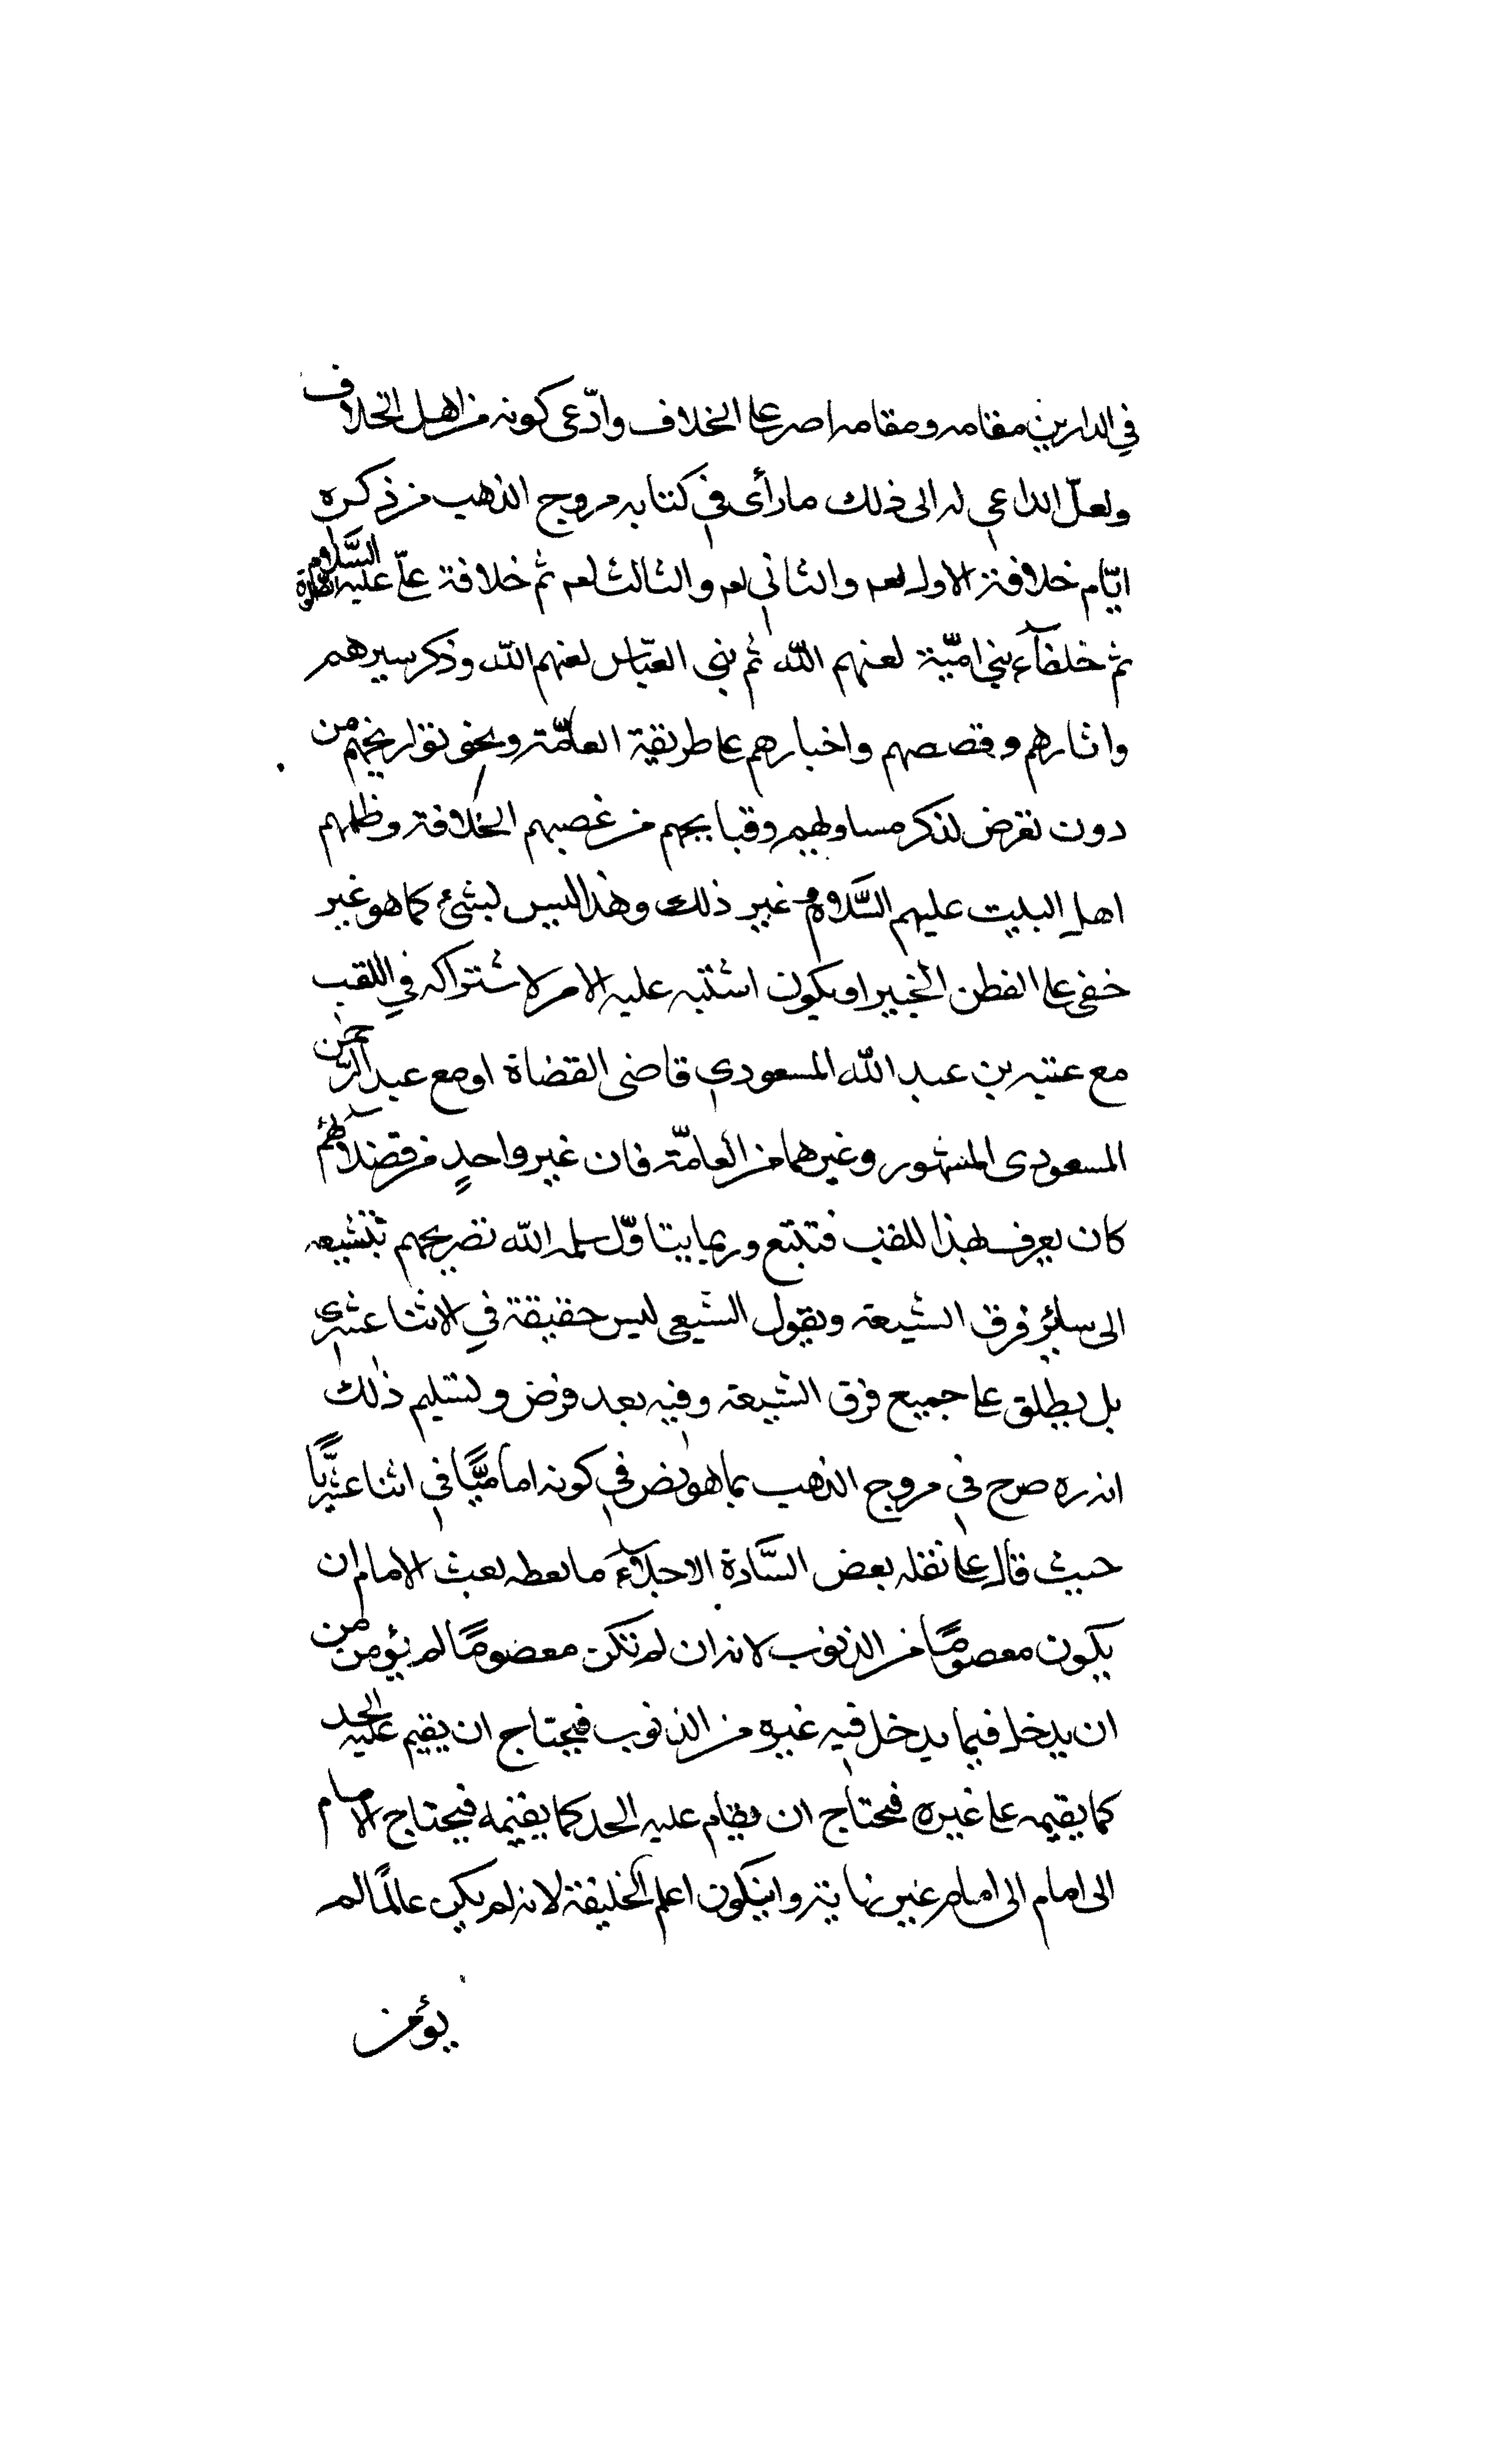 في الدارين مقامه ومقامه اصر على الخلاف وادّعى كونه من اهل الخلاف
ولعلّ الداعي له الى ذلك ما رأى في كتابه مروج الذهب من ذكره
ايّام خلافة الاول لعه والثاني لعه والثالث لعه ثم خلافة عليّ عليه الصلوة السَّلام
ثم خلفآء بني اميّة لعنهم اللّه ثم بني العبّاس لعنهم اللّه وذكر سيرهم
واثارهم وقصصهم واخبارهم على طريقة العامّة ونحو تواريخهم من
دون تعرض لذكر مساويهم وقبايحهم من غصبهم الخلافة وظلمهم
اهل البيت عليهم السَّلام وغير ذلك وهذا ليس بشئ كما هو غير
خفى على الفطن الخبير او يكون اشتبه عليه الامر لاشتراكه في اللقب
مع عتبه بن عبد اللّه المسعودي قاضى القضاة او مع عبد الرّحمن
المسعودى المشهور وغيرهما من العامّة فان غير واحدٍ من فضلآئهم
كان يعرف بهذا اللقب فتتبع وربما يتاوّل سلمه اللّه تصريحهم بتشيعه
الى سائر فرق الشيعة ويقول الشيعى ليس حقيقة في الاثنا عشرى
بل يطلق على جميع فرق الشيعة وفيه بعد فرض وتسليم ذلك
انه ره صرح في مروج الذهب بما هو نص في كونه اماميًّا في اثنا عشريًّا
حيث قال على نقله بعض السَّادة الاجلآء ما لفظه نعت الامام ان
يكون معصومًا من الذنوب لانه ان لم تكن معصومًا لم يؤمن من
ان يدخل فيما يدخل فيه غيره من الذنوب فيحتاج ان يقيم عليه الحد
كما يقيمه على غيره فيحتاج ان يقام عليه الحد كما يقيمه فيحتاج الامام
الى امام الى امام غير نهاية وان يكون اعلم الخليفة لانه لم يكن عالمًا لم
يؤمن